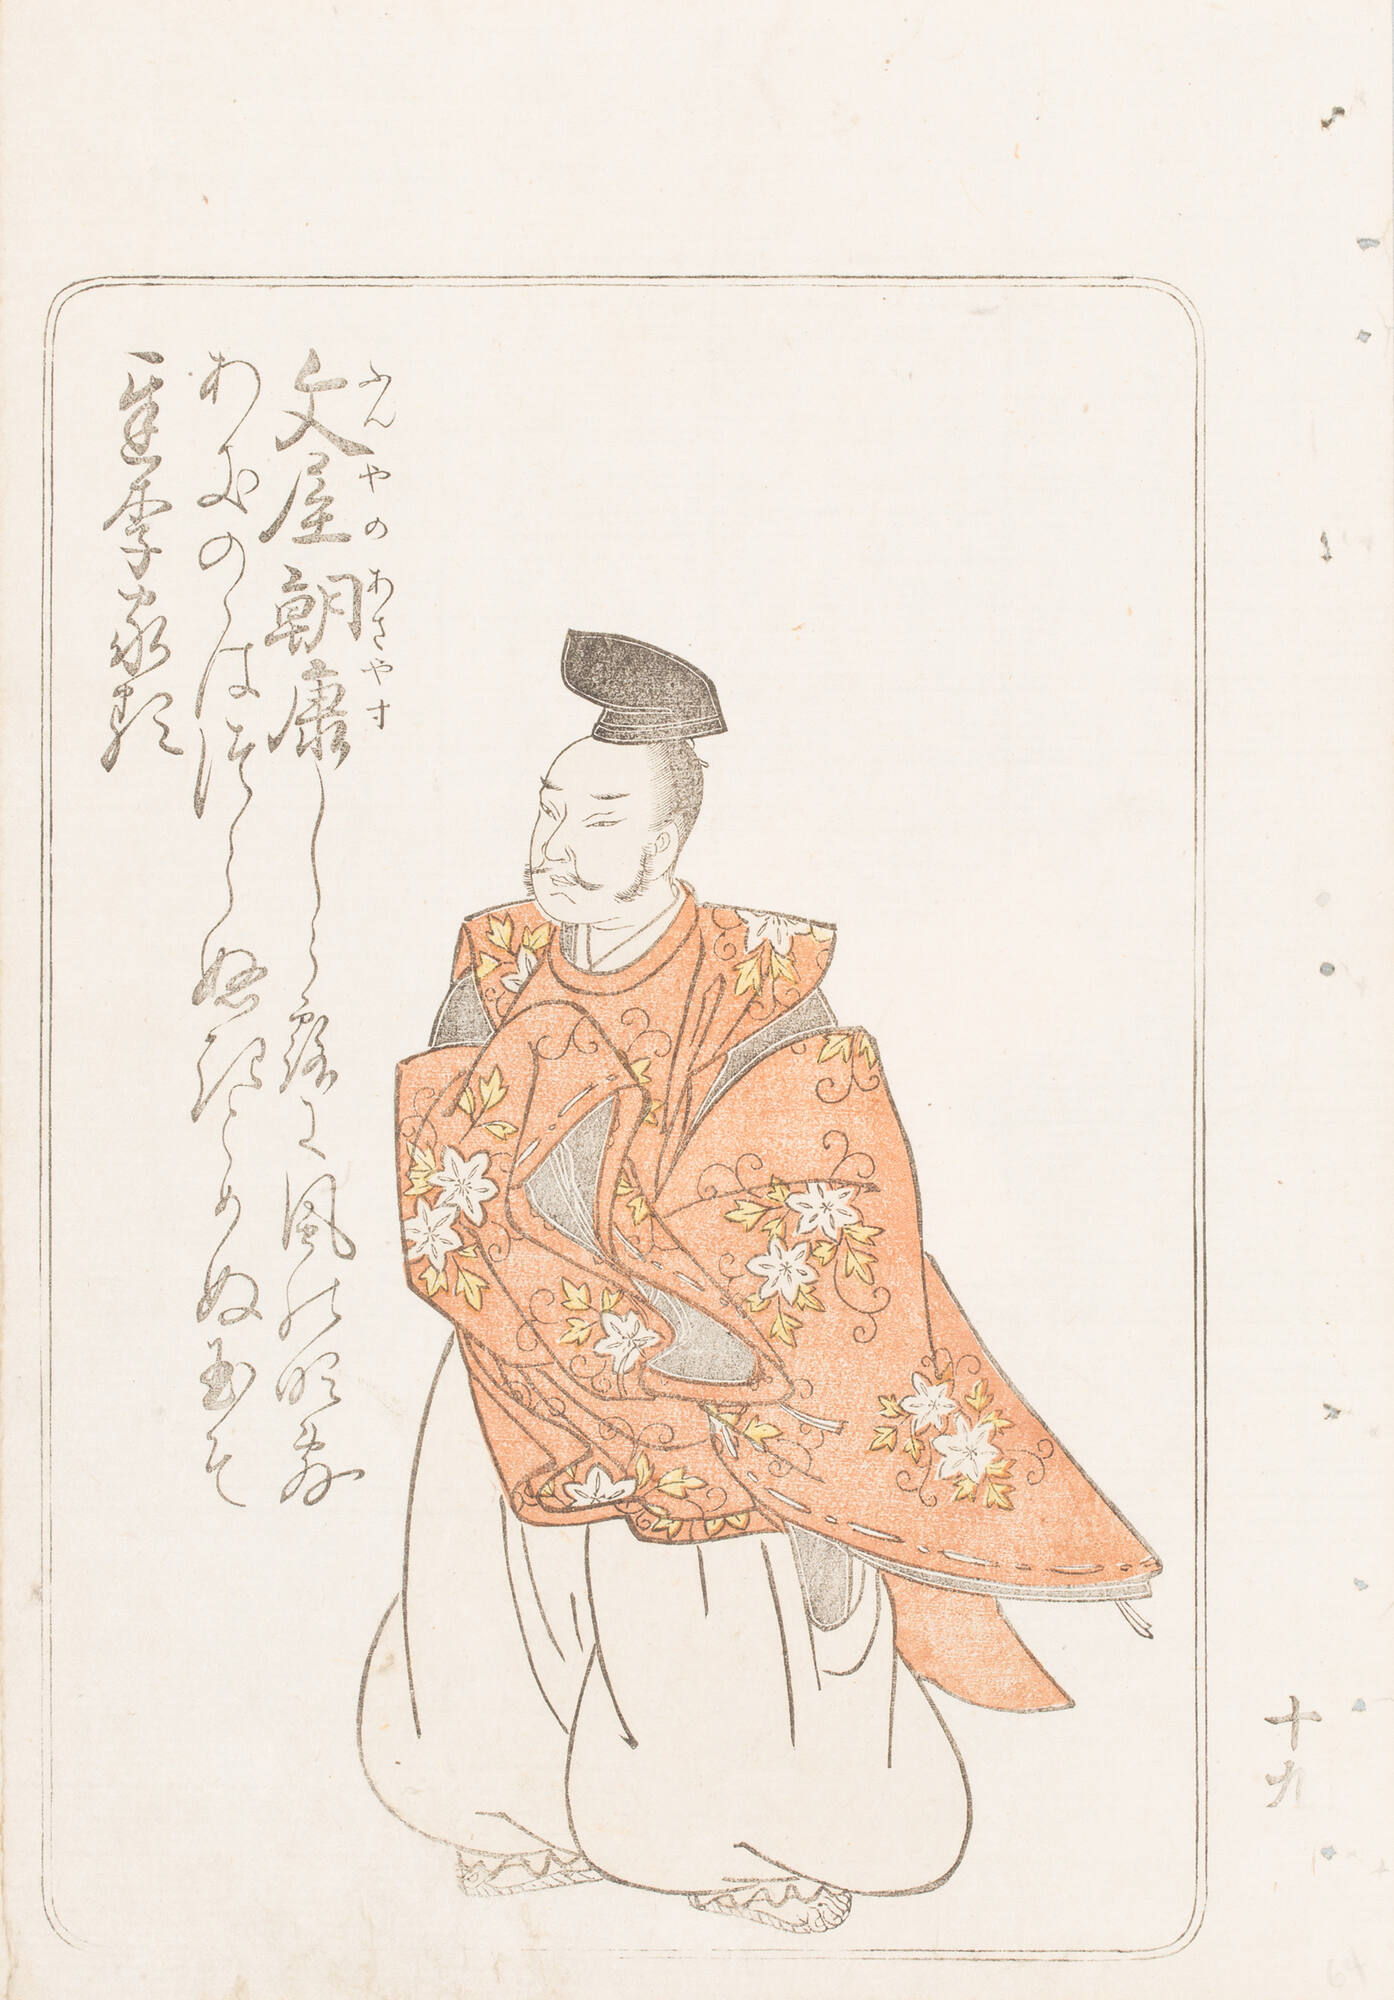 文屋朝康しら露に風の吹敷
ふんやのあさやす
あきのゝはつらぬきとめぬ玉そ
ちりける
十九
64